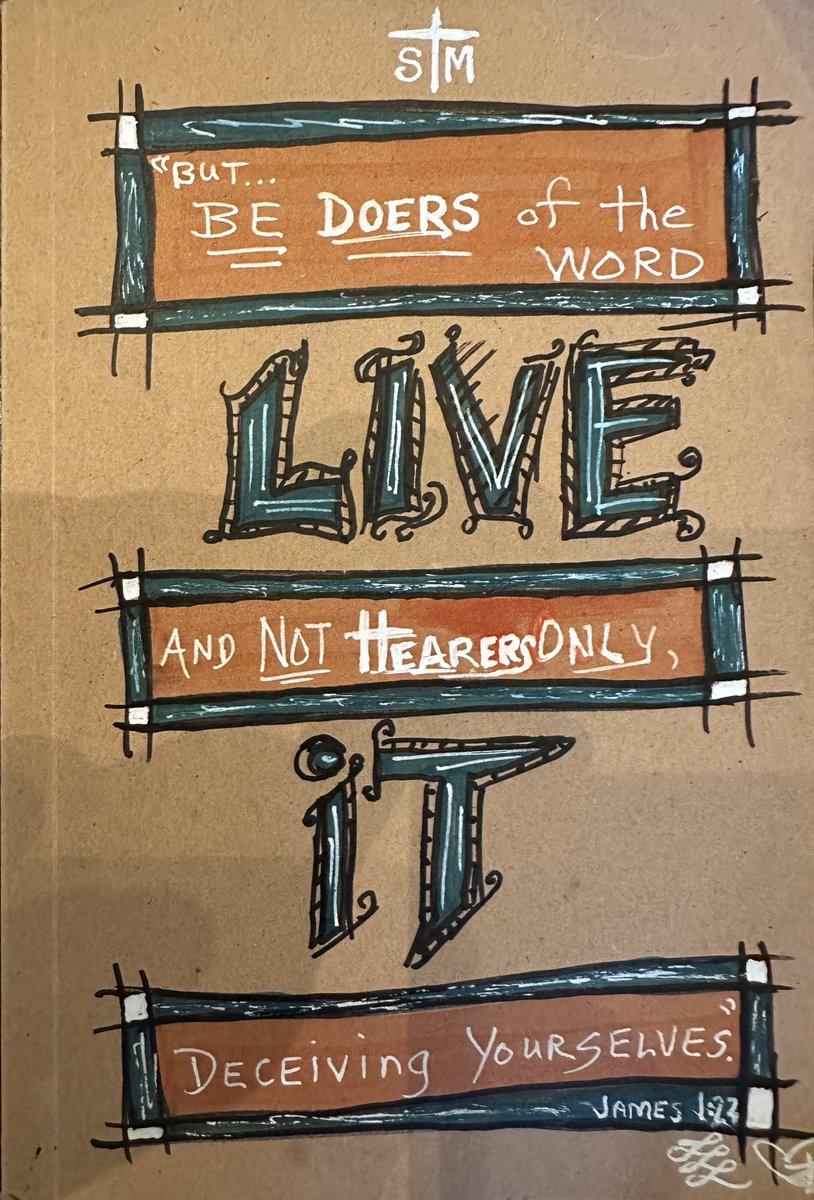 STM
"BUT...
BE DOERS of the
WORD
LIVE
AND NOT HEARERS ONLY,
iT
DECEIViNg YOURSELVES."
JAMES 1:22